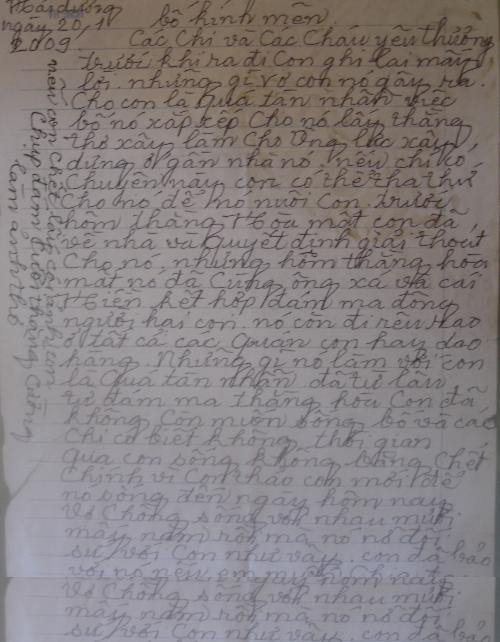 Hải dương
ngày 20,1
2009
bố kính mến
Các Chị và Các Cháu yêu thương
trước khi ra đi Con ghi lại mấy
lời. những gì vợ con nó gây ra.
Cho con là Quá tàn nhẫn việc
bố nó xắp xếp Cho nó lấy thằng
thợ xây làm Cho Ông lúc xây
dựng ở gần nhà nó nếu chỉ có
Chuyện này con có thể tha thứ
Cho nó để nó nuôi Con. trước
hôm thằng Hòa mất con đã
về nhà và Quyết định giải thoát
Cho nó, nhưng hôm thằng hòa
mất nó đã Cùng ông xã và cái
Hiền kết hợp đám ma đông
người hai con. nó còn đi rêu rao
ở tất cả các Quán con hay dao
hàng. Những gì nó làm với con
là Quá tàn nhẫn đã từ lâu
từ đám ma thằng hòa Con đã
không Còn muốn sống bố và các
chị có biết không thời gian
qua con sống không bằng Chết
Chính vì Con nó sống đến ngày hôm nay
Vợ Chồng sống với nhau mười
mấy năm rồi mà nó nó đối
sử với Con như vậy. con đã bảo
với nó nếu em
Vợ Chồng sống với nhau mười
mấy năm rồi mà nó nó đối
sử với Con như vậy. con đã bảo
con Chết lấy
Chụp đám cưới thằng Cường
làm ảnh thờ